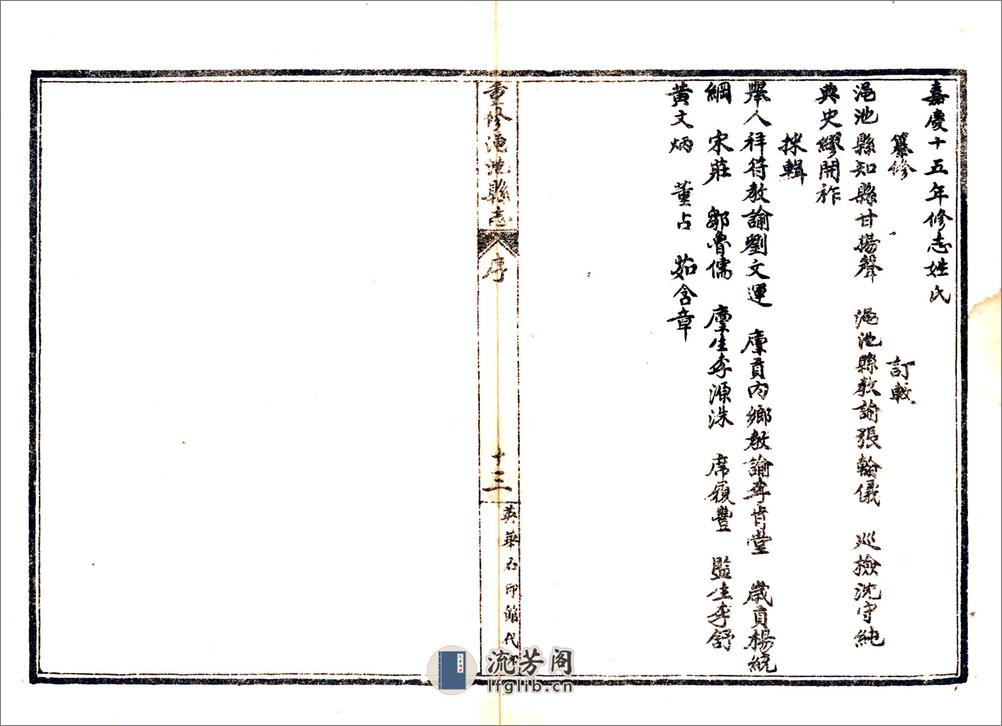 嘉慶十五年修志姓氏
纂修 訂較
澠池縣知縣甘揚聲 澠池縣教諭張翰儀 巡檢沈守純
典史繆開祚
採輯
舉人祥符教諭劉文運 廩貢內鄉教諭李肯堂 歲貢楊統
綱 宋莊 鄒魯儒 廩生李源洙 席嶺豐 監生李舒
黃文炳 董占 茹含章
重修澠池縣志
序
十三
英華石印館代印
流芳阁
lfglib.cn